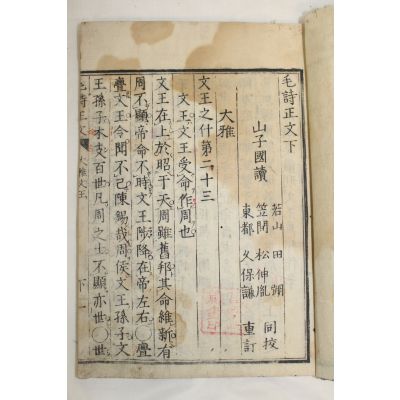 毛詩正文下
山子國讀
若山 田 翊
笠間 松伸胤 同校
東都 久保謙 重訂
大雅
文王之什第二十三
文王文王受命作周也
文王在上於昭于天周雖舊邦其命維新有
周不顯帝命不時文王陟降在帝左右〇亹
亹文王令聞不已陳錫哉周侯文王孫子文
王孫子本支百世凡周之士不顯亦世〇世
毛詩正文 大雅文王 下 一